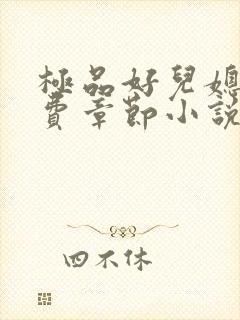 極品好兒媳
費章節小說
四不休